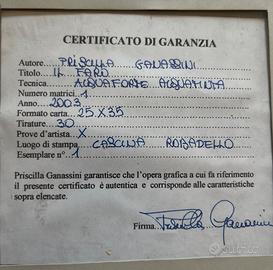 CERTIFICATO DI GARANZIA
Autore PRISCILLA GANASSINI
Titolo IL FARO
Tecnica ACQUAFORTE ACQUATINTA
Numero matrici 1
Anno 2003
Formato carta 25X35
Tirature 30
Prove d'artista X
Luogo di stampa CASCINA ROBADELLO
Esemplare n° 1
Priscilla Ganassini garantisce che l'opera grafica a cui fa riferimento
il presente certificato è autentica e corrisponde alle caratteristiche
sopra elencate.
Firma Priscilla Ganassini
subito.it